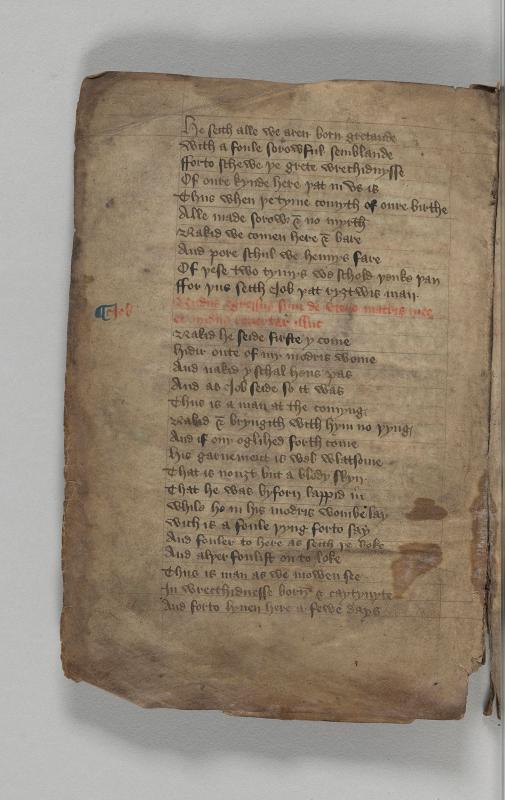 He seith alle we aren born gretande
With a foule sorowful semblande
Fforto schewe þe grete wrechidnysse
Of oure kynde here þat in vs is
Thus when þe tyme comyth of oure birthe
Alle made sorow & no myrth
Nakid we comen here & bare
And pore schul we hennys fare
Of þese two tymys we schold þenke þan
Ffor þus seith Job þat ryȝtwis man
Job
Nudus egressus sum de vtero matris mee
et nudus reuertar illuc
Nakid he seide firste y come
Hidir oute of my modris wome
And nakid y schal hens pas
And as Job seide so it was
Thus is a man at the comyng
Nakid & bryngith with hym no þyng
And if ony oglihed forth come
His garnement is wel wlatsome
That is nouȝt but a blody skyn
That he was byforn lappid in
While he in his modris wombe lay
Wich is a foule þyng forto say
And fouler to here as seith þe boke
And alþer foulist on to loke
Thus is man as we mowen see
In wrecchidnesse born & caytyuyte
And forto lyuen here a fewe days